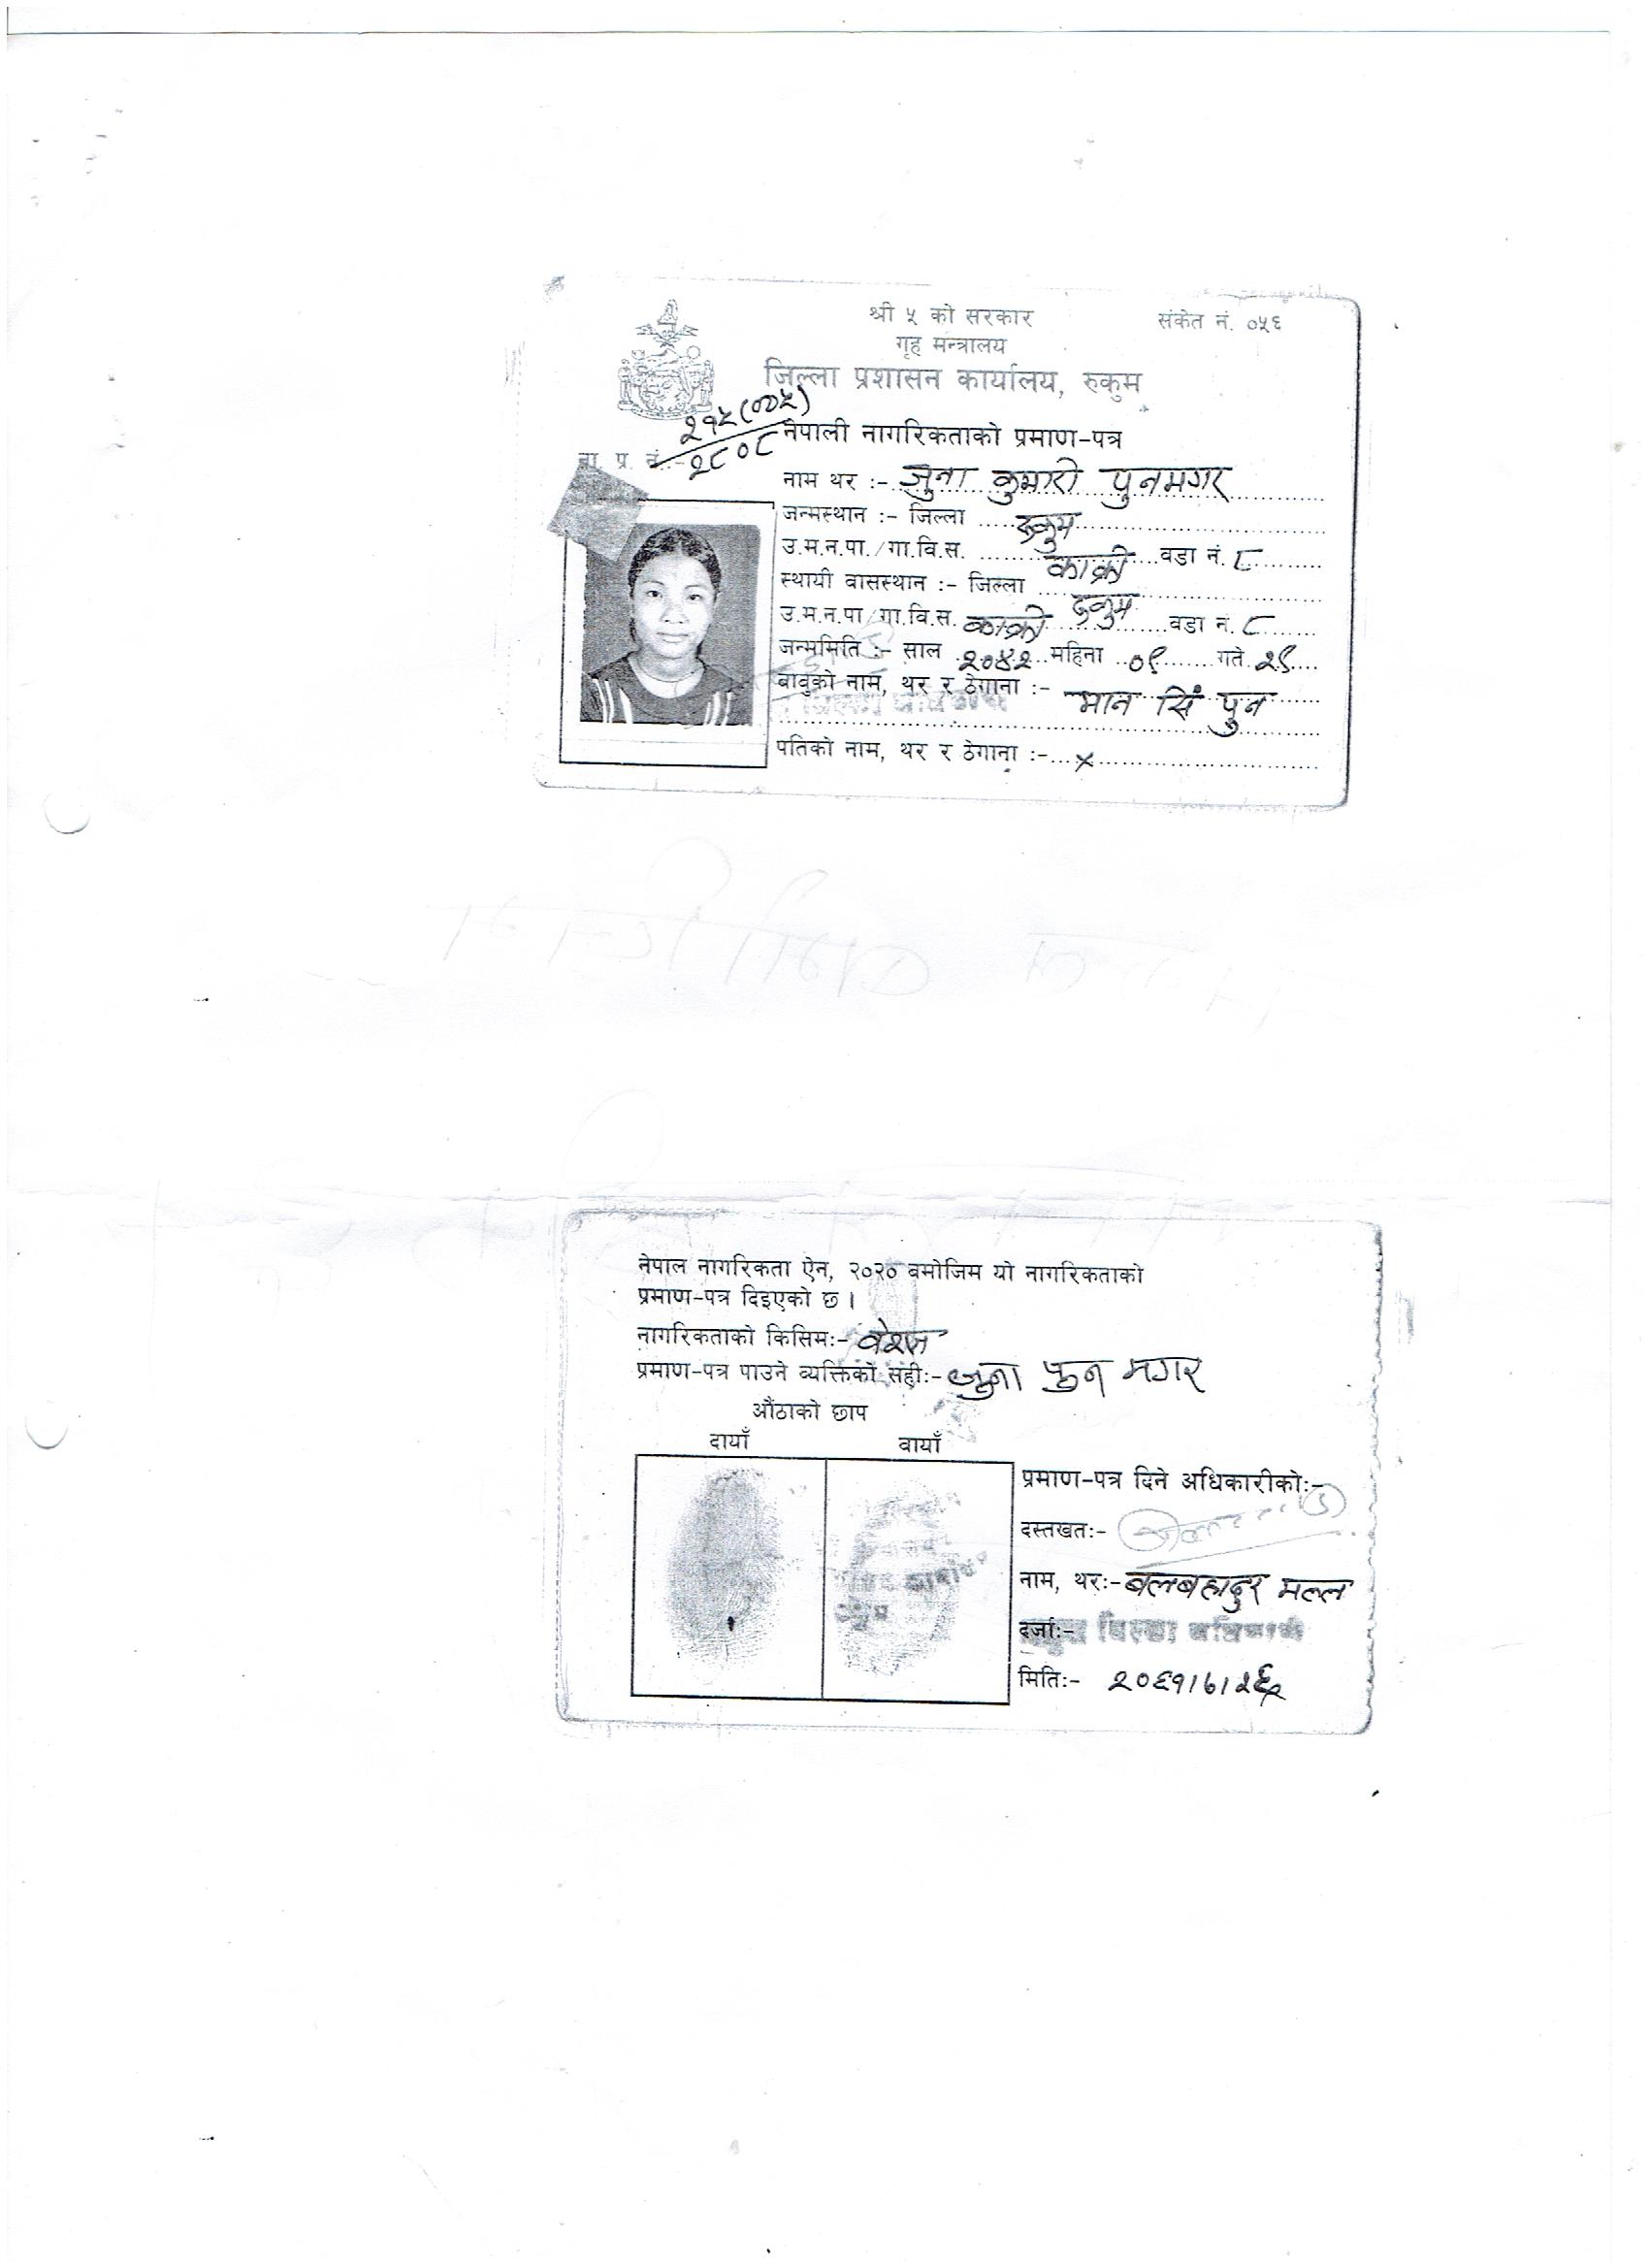 श्री ५ को सरकार
संकेत नं. ०५६
गृह मन्त्रालय
जिल्ला प्रशासन कार्यालय, रुकुम
नेपाली नागरिकताको प्रमाण-पत्र
ना. प्र. नं.:-
२८०८
नाम थर :- जुना कुमारी पुनमगर
जन्मस्थान :- जिल्ला रुकुम
उ.म.न.पा./गा.वि.स. काक्री वडा नं. ८
स्थायी वासस्थान :- जिल्ला रुकुम
उ.म.न.पा/गा.वि.स. काक्री वडा नं. ८
जन्ममिति :- साल २०४२ महिना ०९ गते २९
बावुको नाम, थर र ठेगाना :- मान सिं पुन
पतिको नाम, थर र ठेगाना :- x
नेपाल नागरिकता ऐन, २०२० बमोजिम यो नागरिकताको
प्रमाण-पत्र दिइएको छ ।
नागरिकताको किसिमः- वंशज
प्रमाण-पत्र पाउने व्यक्तिको सहीः- जुना पुन मगर
औंठाको छाप
दायाँ वायाँ
प्रमाण-पत्र दिने अधिकारीकोः-
दस्तखतः-
नाम, थरः- बलबहादुर मल्ल
दर्जाः- प्रमुख जिल्ला अधिकारी
मितिः-